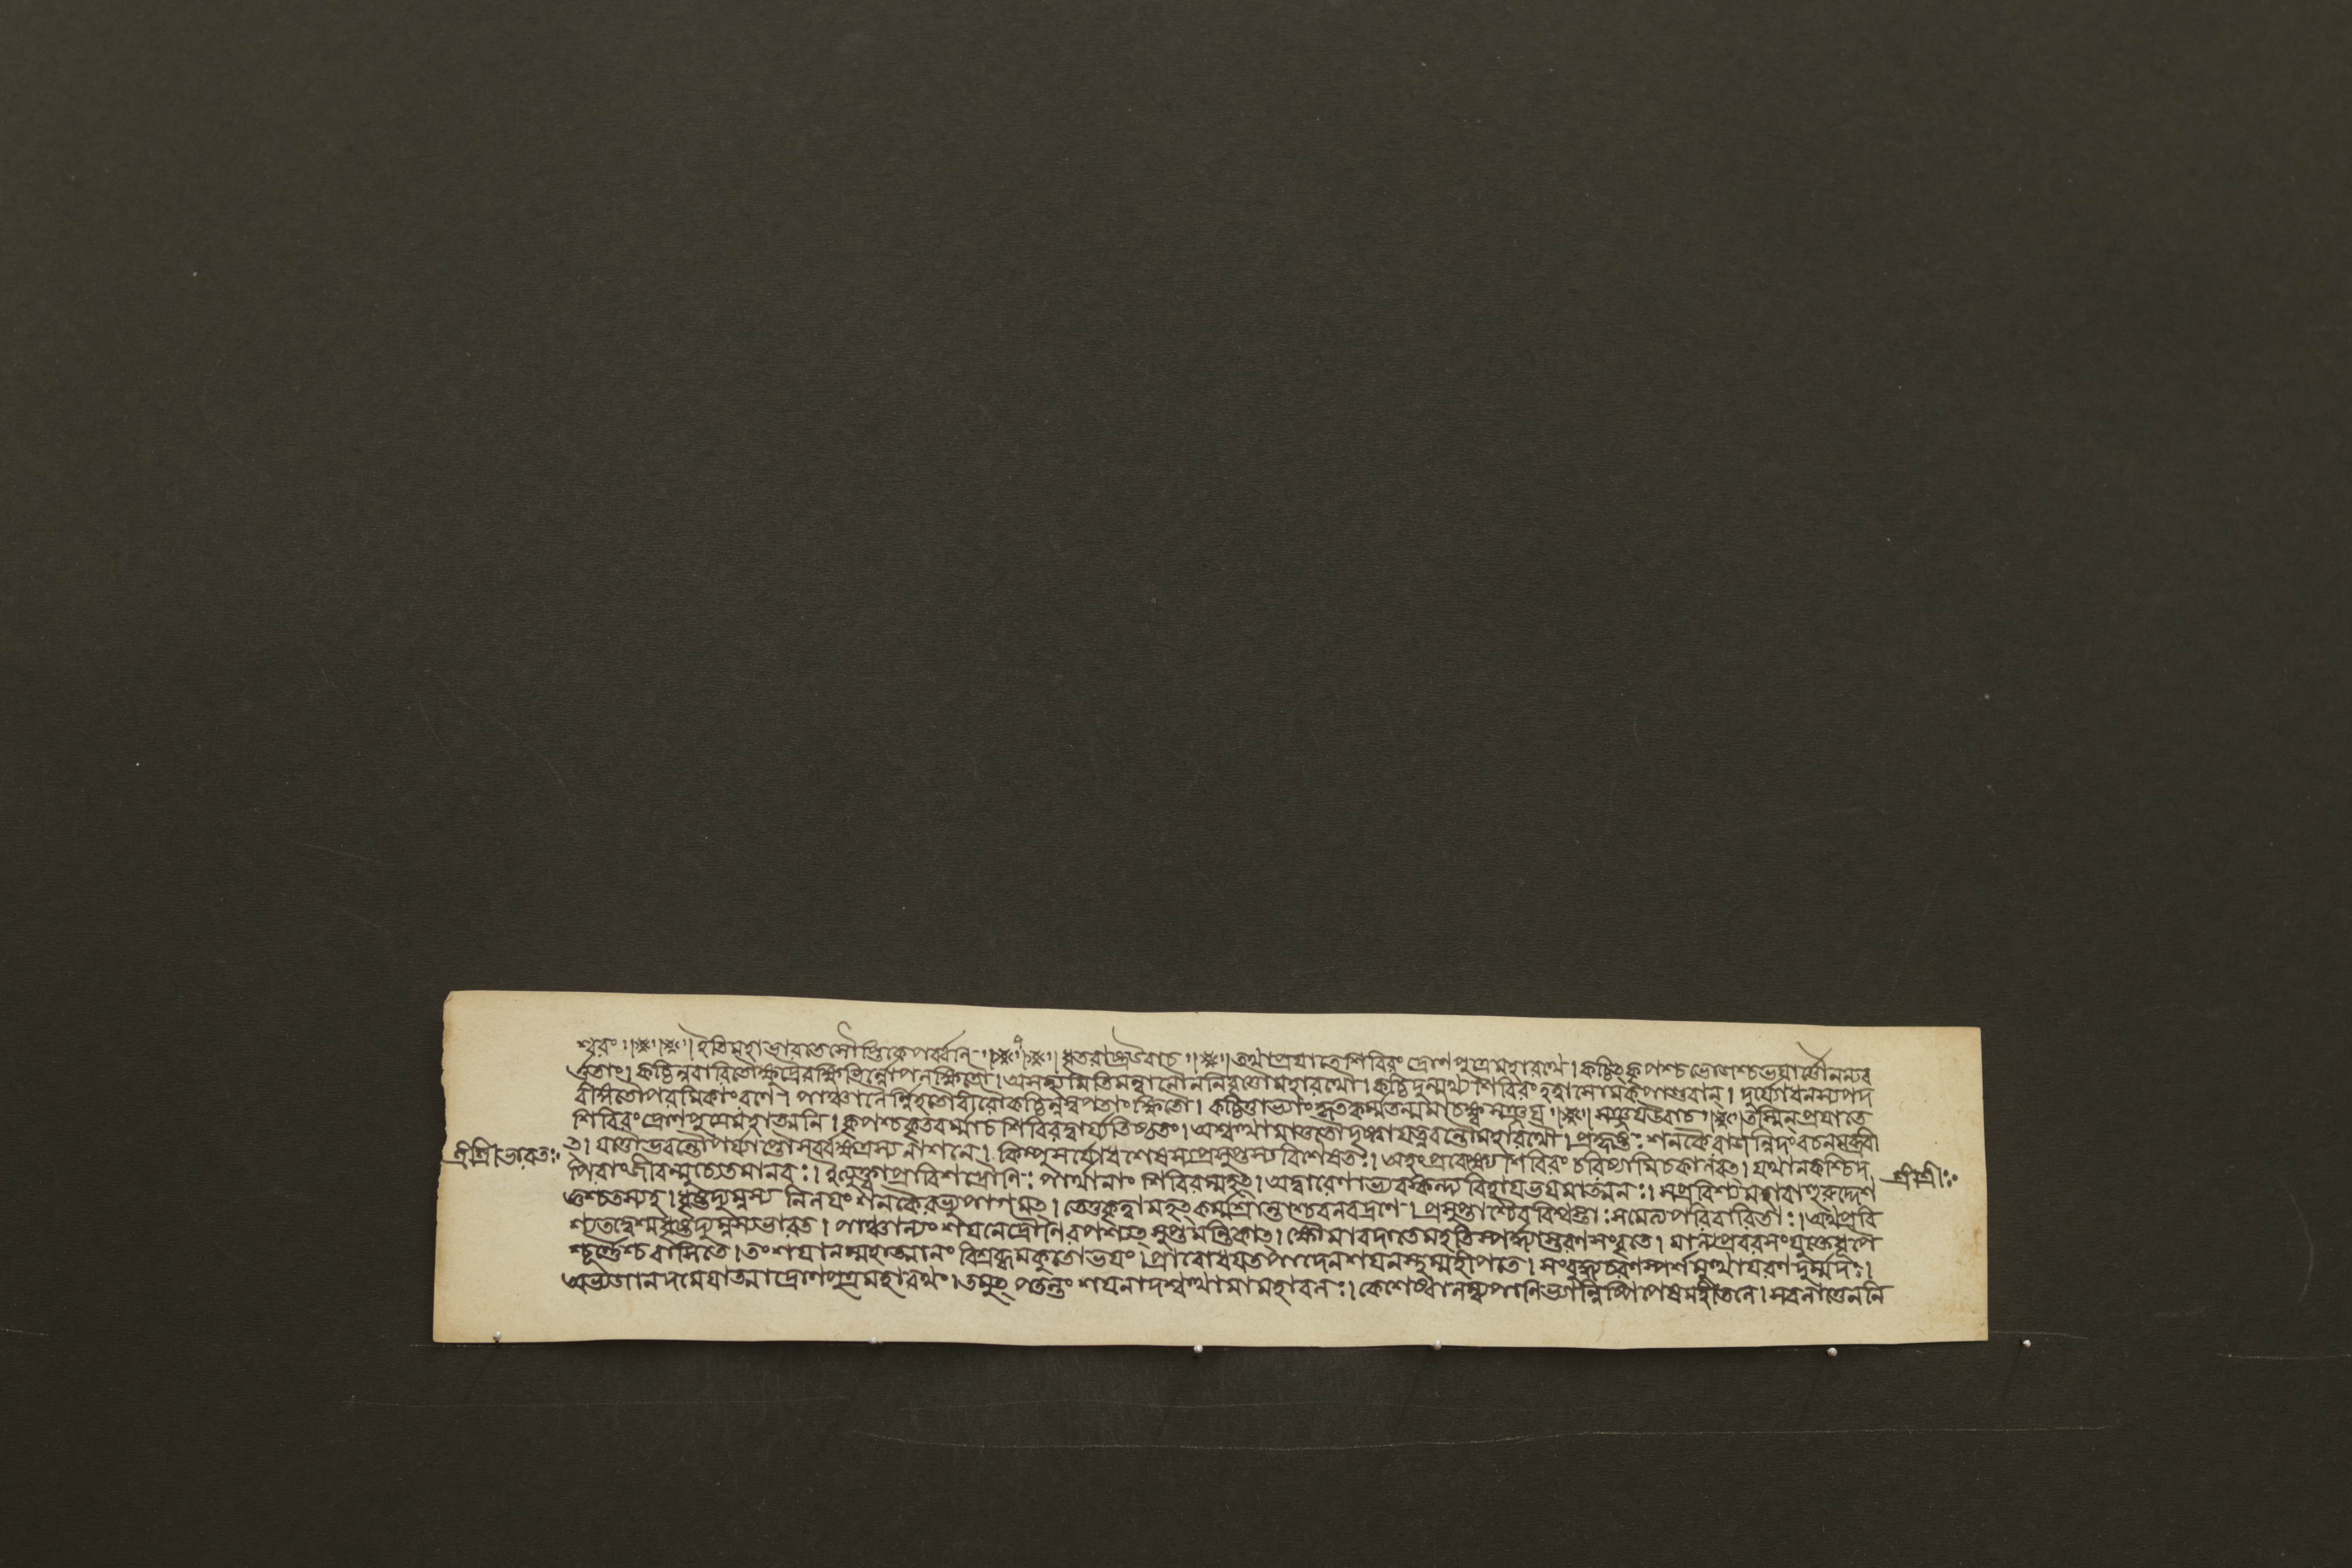 শ্বরং ইতিমহাভারতেসৌপ্তিকেপর্ব্বনি ধৃতরাষ্ট্রউবাচ তথাপ্রযাতেশিবিরং দ্রোণপুত্রেমহারথে। কচ্চিৎকৃপশ্চভোজশ্চভযার্ত্তৌনন্যব
র্ত্ততাং। কচ্চিন্নবারিতৌক্ষুদ্রৈরক্ষিভির্ন্নোপলক্ষিতৌ। অসহ্যমিতিমন্বানৌননিবৃত্তৌমহারথৌ। কচ্চিদুন্মথ্যশিবিরং হত্বাসোমকপাণ্ডবান্। দুর্য্যোধনস্যপদ
বীংগতৌপরমিকাংরণে। পাঞ্চালৈর্ন্নিহতৌবীরৌকচ্চিন্নস্বপতাংক্ষিতৌ। কচ্চিত্তাভ্যাংকৃতকর্ম্মতন্মমাচক্ষ্বসঞ্জয সঞ্জযউবাচ তস্মিন্প্রযাতে
শিবিরংদ্রোণপুত্রেমহাত্মনি। কৃপশ্চকৃতবর্ম্মাচশিবিরদ্বার্য্যতিষ্ঠতাং। অশ্বত্থামাতুতৌদৃষ্ট্বাযত্নবন্তৌমহারথৌ। প্রহৃষ্টঃ শনকৈরাজন্নিদংবচনমব্রবী
ৎ। যত্তৌভবন্তৌপর্য্যাপ্তৌসর্ব্বক্ষত্রস্যনাশনে। কিম্পুনর্যোধশেষস্যপ্রসুপ্তস্যবিশেষতঃ। অহংপ্রবেক্ষ্যেশিবিরং চরিষ্যামিচকালবৎ। যথানকশ্চিদ
পিবাংজীবন্মুচ্যেতমানবঃ। ইত্যুক্ত্বাপ্রাবিশদ্দ্রৌণিঃ পার্থানাং শিবিরম্মহৎ। অদ্বারেণাভ্যবস্কন্দ্যবিহাযভযমাত্মনঃ। সপ্রবিশ্যমহাবাহুরুদ্দেশ
জ্ঞশ্চতস্যহ। ধৃষ্টদ্যুম্নস্য নিলযং শনকৈরভ্যুপাগমৎ। তেতুকৃত্বামহৎকর্ম্মশ্রান্তাশ্চবলবদ্রণে। প্রসুপ্তাশ্চৈববিশ্বস্তাঃ সসৈন্যপরিবারিতাঃ। অথপ্রবি
শ্যতদ্বেশ্মধৃষ্টদ্যুম্নস্যভারত। পাঞ্চাল্যং শযনেদ্রৌণিরপশ্যৎসুপ্তমন্তিকাৎ। ক্ষৌমাবদাতেমহতিস্পর্দ্ধ্যাস্তরণসংবৃতে। মাল্যপ্রবরসংযুক্তেধূপৈ
শ্চূর্ণ্ণৈশ্চবাসিতে। তংশযানম্মহাত্মানং বিশ্রব্ধমকুতোভযং। প্রাবোধযতপাদেনশযনস্থম্মহীপতে। সংবুধ্যচরণস্পর্শমুত্থাযরণদুর্ম্মদঃ।
অভ্যজানদমেযাত্মাদ্রোণপুত্রমহারথং। তমুৎপতন্তং শযনাদশ্বত্থামামহাবলঃ। কেশেষ্বালম্ব্যপাণিভ্যান্নিষ্পিপেষমহীতলে। সবলাত্তেননি
শ্রীশ্রীভারতঃ
শ্রীশ্রীঃ